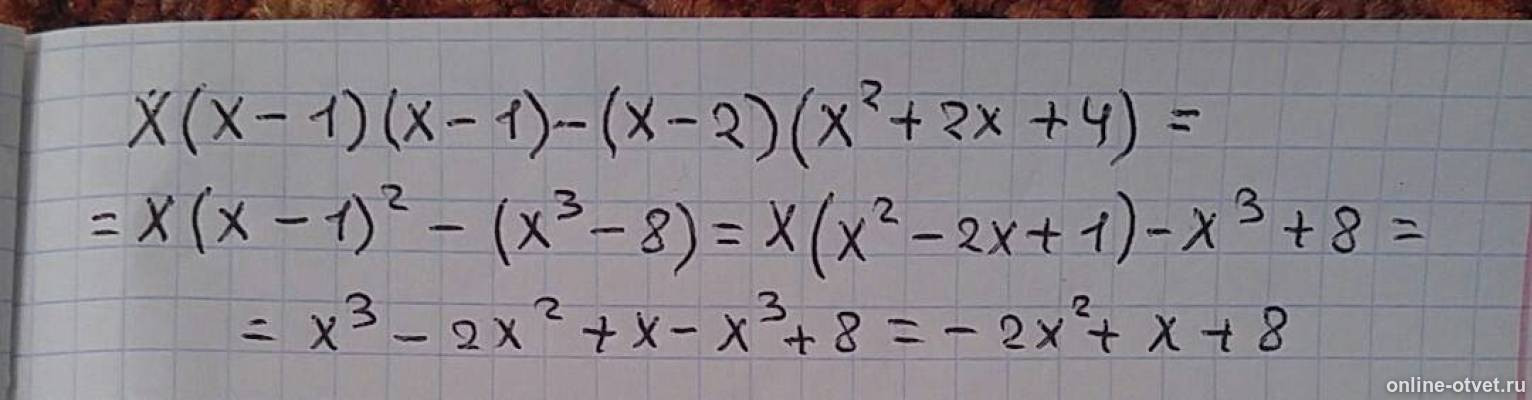 x(x-1)(x-1)-(x-2)(x²+2x+4)=
=x(x-1)²-(x³-8)=x(x²-2x+1)-x³+8=
=x³-2x²+x-x³+8=-2x²+x+8
online-otvet.ru